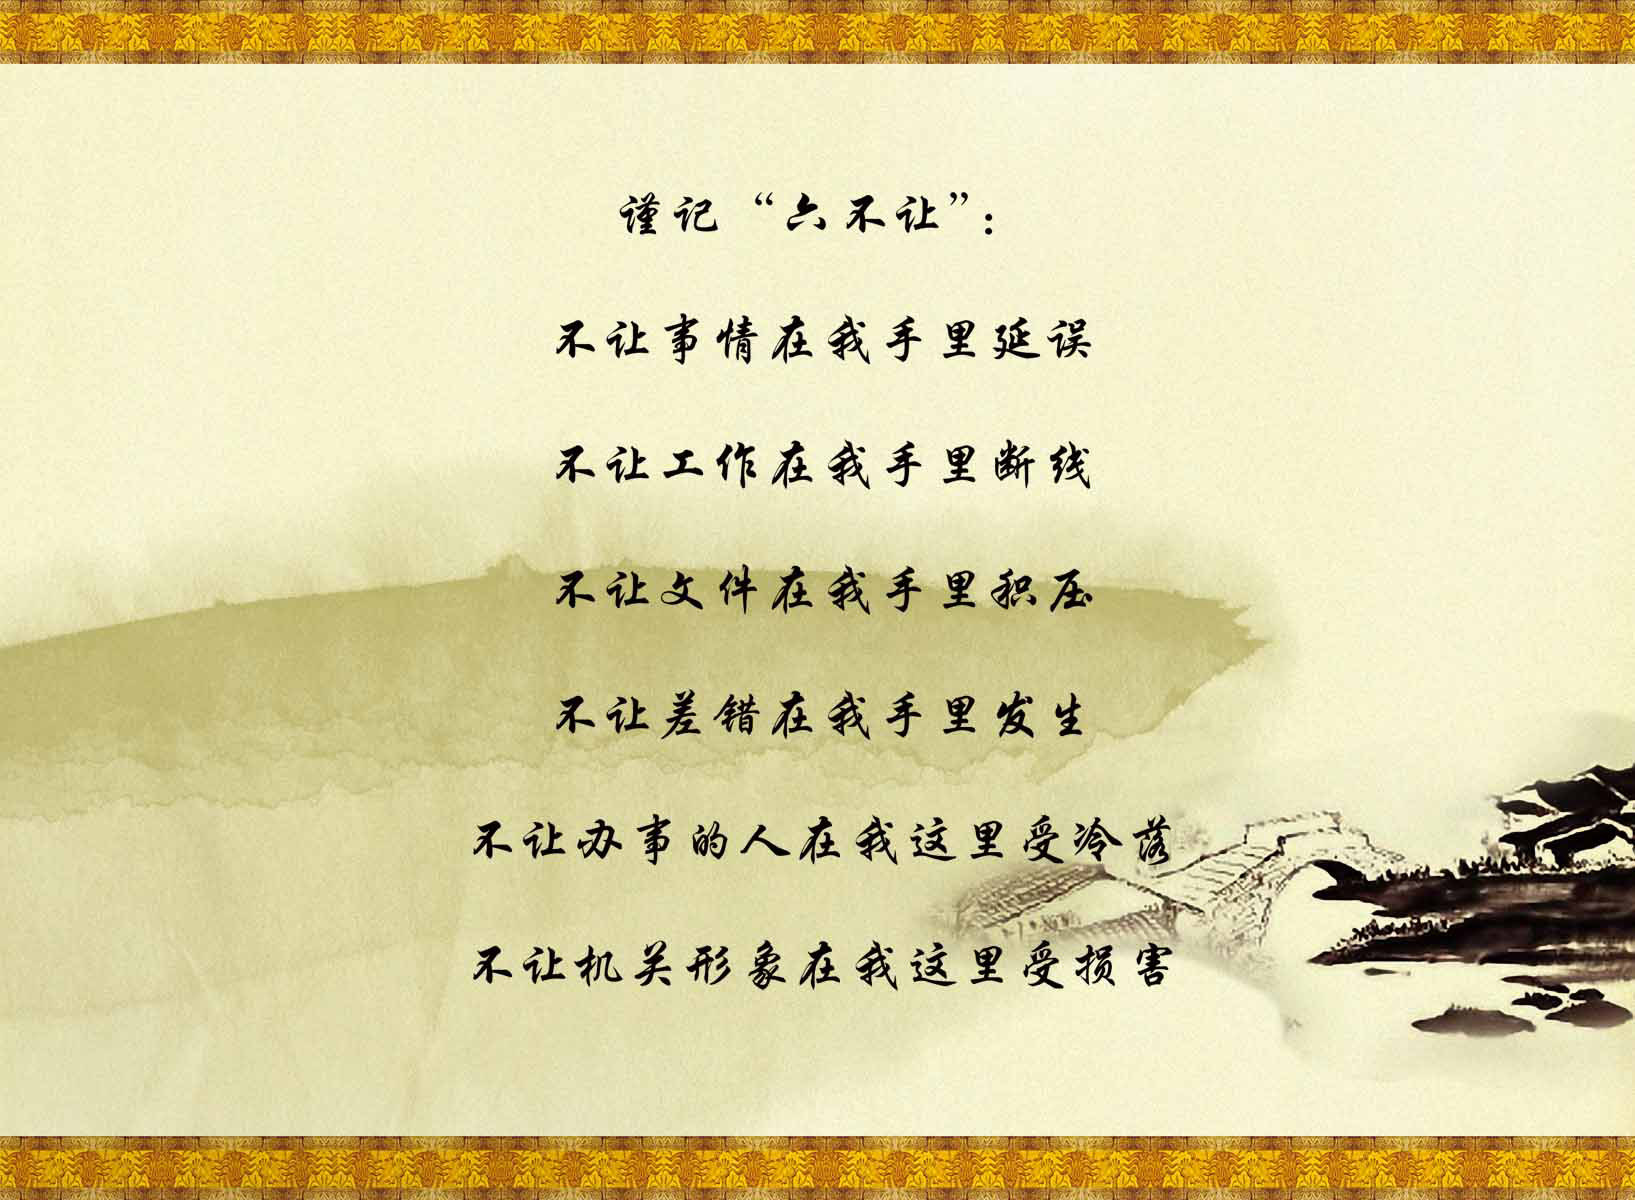 谨记“六不让”：
不让事情在我手里延误
不让工作在我手里断线
不让文件在我手里积压
不让差错在我手里发生
不让办事的人在我这里受冷落
不让机关形象在我这里受损害